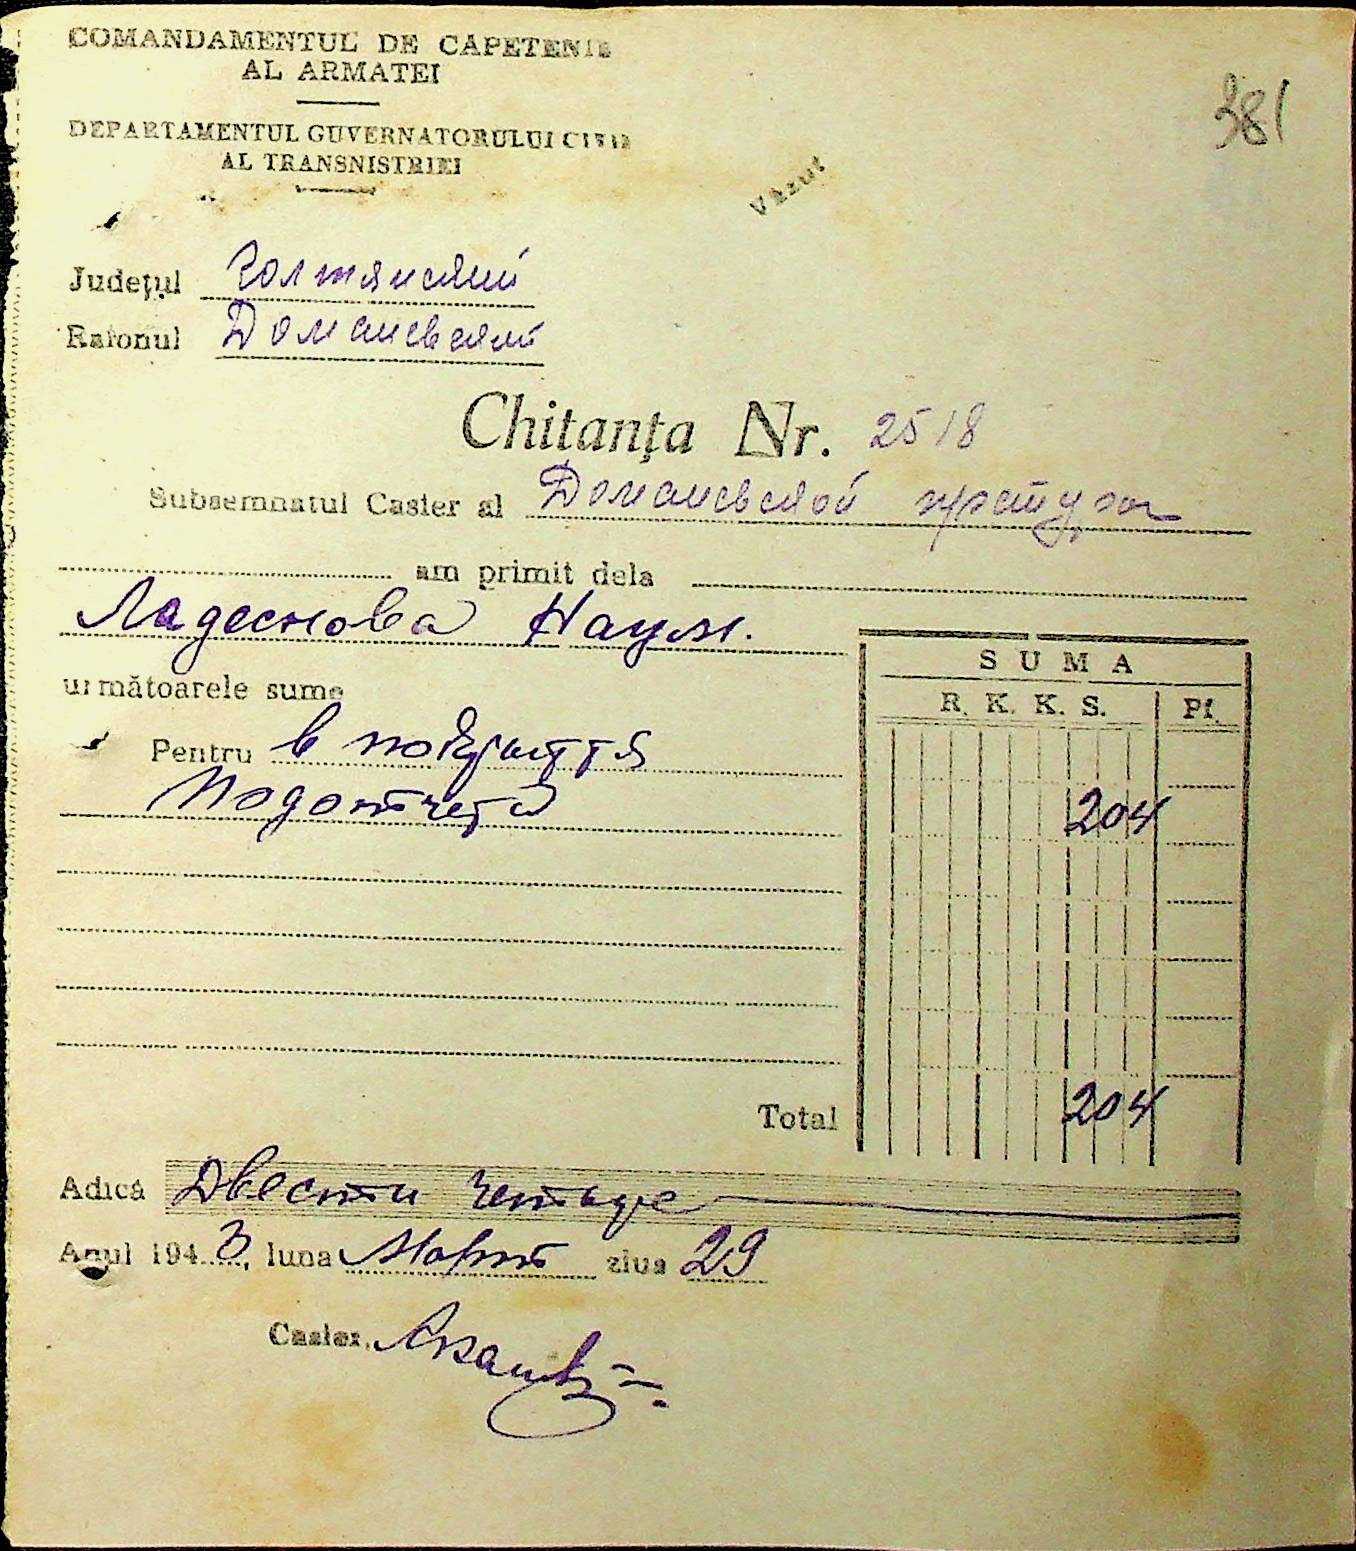 COMANDAMENTUL DE CAPETENIE
AL ARMATEI
381
DEPARTAMENTUL GUVERNATORULUI CIVIL
AL TRANSNISTRIEI
Văzut
Județul Голтянский
Raionul Доманевский
Chitanța Nr. 2518
Subsemnatul Casier al Доманевской претуры
am primit dela
Ладеснова Наум.
următoarele sume
SUMA
R. K. K. S. Pf.
Pentru в покриття
Подотчета 204
Total 204
Adică Двести четыре
Anul 1943, luna Март ziua 29
Casier,